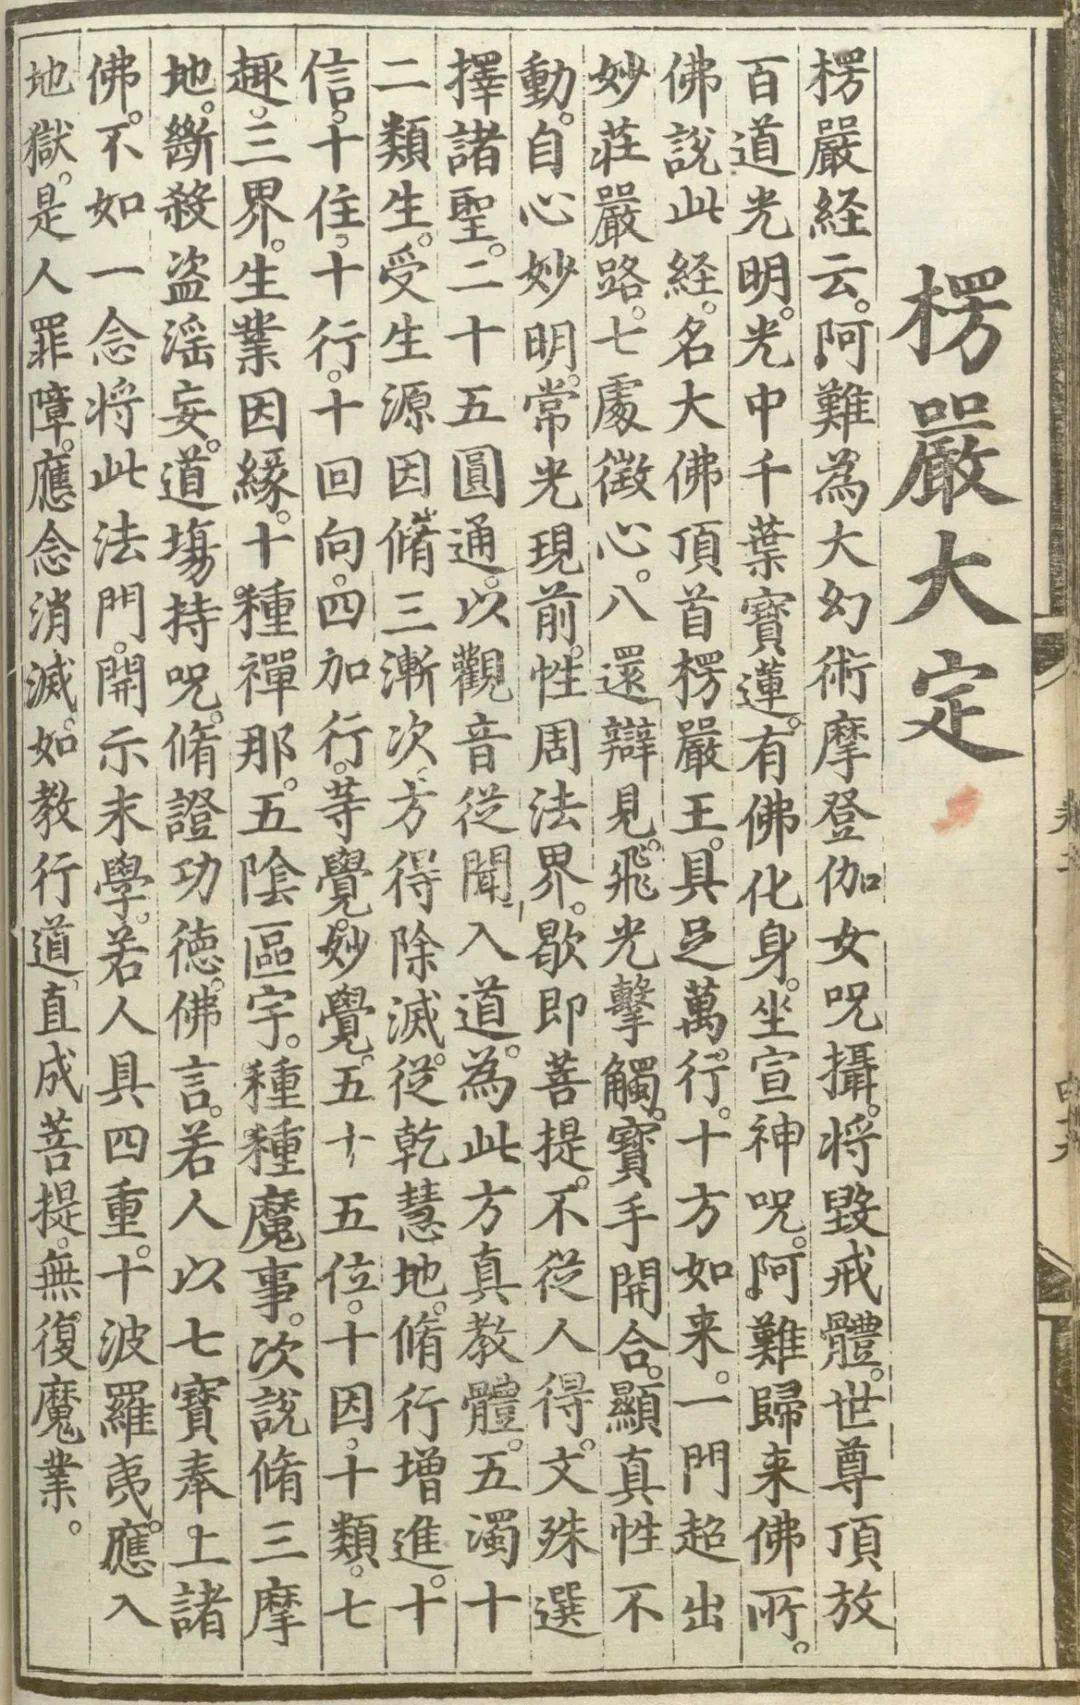 楞嚴大定
楞嚴経云。阿難為大幻術摩登伽女呪攝。将毀戒體。世尊頂放
百道光明。光中千葉寶蓮。有佛化身。坐宣神呪。阿難歸来佛所。
佛說此経。名大佛頂首楞嚴王。具足萬行。十方如来。一門超出
妙莊嚴路。七處徵心。八還辯見。飛光擊觸。寶手開合。顯真性不
動。自心妙明。常光現前。性周法界。歇即菩提。不從人得。文殊選
擇諸聖。二十五圓通。以觀音從聞入道。為此方真教體。五濁十
二類生。受生源因。脩三漸次。方得除滅。從乾慧地。脩行增進。十
信。十住。十行。十回向。四加行。等覺。妙覺。五十五位。十因。十類。七
趣。三界。生業因緣。十種禪那。五陰區宇。種種魔事。次說脩三摩
地。斷殺盜淫妄。道場持呪。脩證功德。佛言。若人以七寶奉上諸
佛。不如一念将此法門。開示末學。若人具四重。十波羅夷。應入
地獄。是人罪障。應念消滅。如教行道。直成菩提。無復魔業。